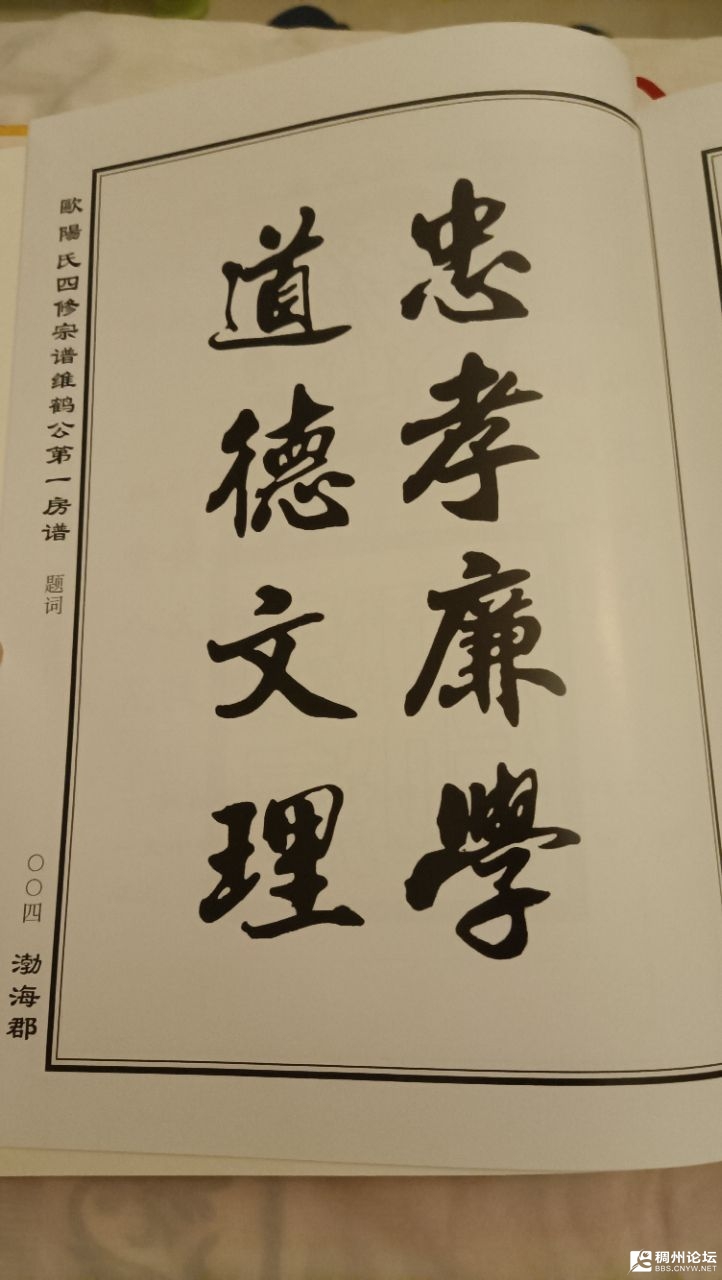 忠孝廉學
道德文理
歐陽氏四修宗谱维鹤公第一房谱
题词
〇〇四
渤海郡
稠州论坛
BBS.CNYW.NET